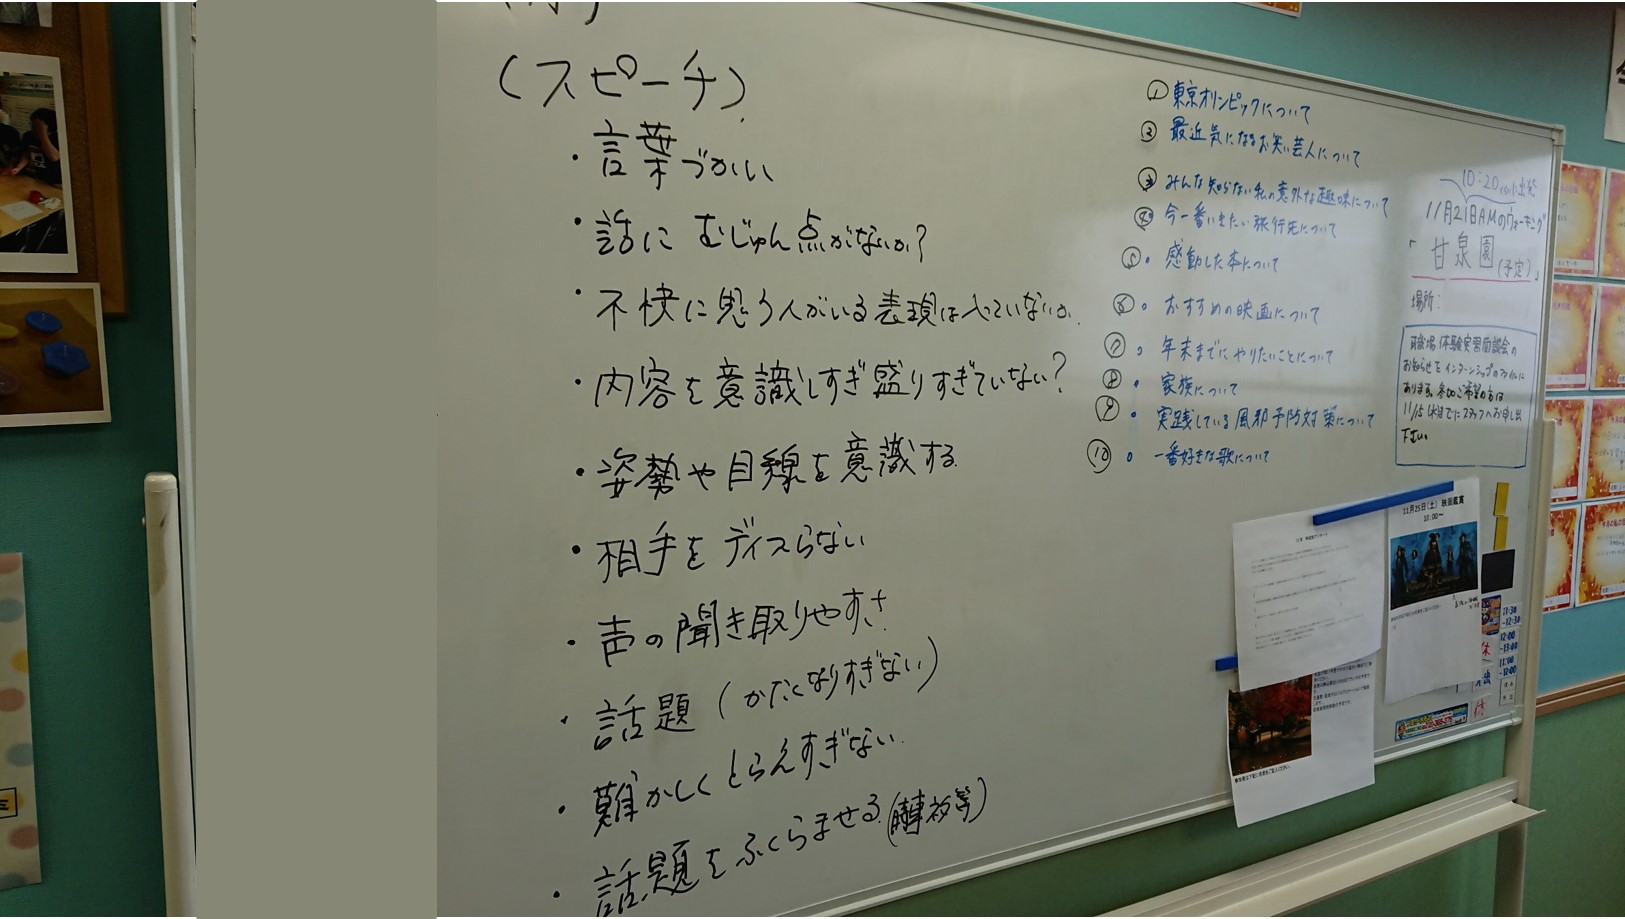 (スピーチ)
・言葉づかい
・話に むじゅん点がないか?
・不快に思う人がいる表現は入っていないか.
・内容を意識しすぎ盛りすぎていない?
・姿勢や目線を意識する.
・相手をディスらない
・声の聞き取りやすさ
・話題(かたくなりすぎない)
・難かしくとらえすぎない.
・話題をふくらませる.
① 東京オリンピックについて
② 最近気になるお笑い芸人について
③ みんな知らない私の意外な趣味について
④ 今一番いきたい旅行先について
⑤。感動した本について
⑥。おすすめの映画について
⑦。年末までにやりたいことについて
⑧。家族について
⑨。実践している風邪予防対策について
⑩。一番好きな歌について
10:20 に出発
11月21日AMのウォーキング
「甘泉園(予定)」
場所:
職場体験実習面談会の
お知らせをインターンシップのファイルに
あります。参加ご希望の方は
11/15(水)までにスタッフへお申し出
下さい。
11月25日(土) 映画鑑賞
10:00~
11:30
~12:30
12:00
~13:00
11:00
~12:00
休
休